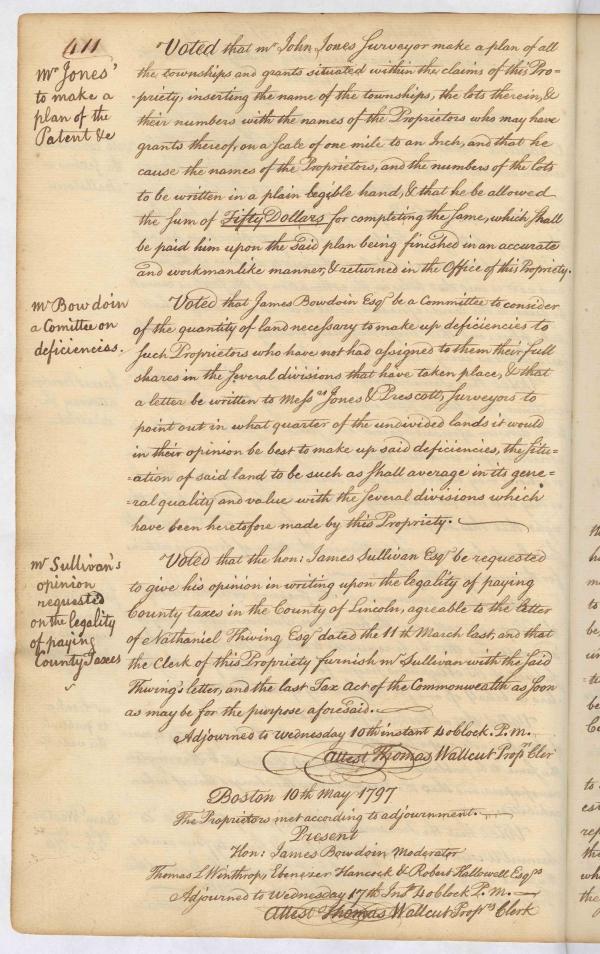 411
Voted that mr John Jones Surveyor make a plan of all
the townships and grants situated within the claims of this Pro-
priety, inserting the name of the townships, the lots therein, &
their numbers with the names of the Proprietors who may have
grants thereof, on a Scale of one mile to an Inch, and that he
cause the names of the Proprietors, and the numbers of the lots
to be written in a plain legible hand, & that he be allowed
the Sum of Fifty Dollars for completing the Same, which Shall
be paid him upon the said plan being finished in an accurate
and workmanlike manner, & returned in the Office of this Propriety.
Mr Jones'
to make a
plan of the
Patent &c
Voted that James Bowdoin Esqr be a Committee to consider
of the quantity of land necessary to make up deficiencies to
Such Proprietors who have not had assigned to them their full
shares in the Several divisions that have taken place, & that
a letter be written to Messrs Jones & Prescott, Surveyors to
point out in what quarter of the undivided lands it would
in their opinion be best to make up said deficiencies, the Situ=
=ation of said land to be such as Shall average in its gene=
=ral quality and value with the Several divisions which
have been heretofore made by this Propriety.
Mr Bowdoin
a Comittee on
deficiencies.
Voted that the hon: James Sullivan Esqr be requested
to give his opinion in writing upon the legality of paying
County taxes in the County of Lincoln, agreable to the letter
of Nathaniel Thwing Esqr dated the 11th March last, and that
the Clerk of this Propriety furnish mr Sullivan with the Said
Thwing's letter, and the last Tax Act of the Commonwealth as Soon
as may be for the purpose aforesaid.
Mr Sullivan's
opinion
requested
on the legality
of paying
County Taxes
Adjourned to Wednesday 10th instant 4 oblock P.M.
Attest Thomas Wallcut Proprs Cler
Boston 10th May 1797
The Proprietors met according to adjournment.
Present
Hon: James Bowdoin Moderator
Thomas L Winthrop, Ebenezer Hancock & Robert Hallowell Esqrs
Adjourned to Wednesday 17th Inst 4 oblock P.M.
Attest Thomas Wallcut Proprs Clerk